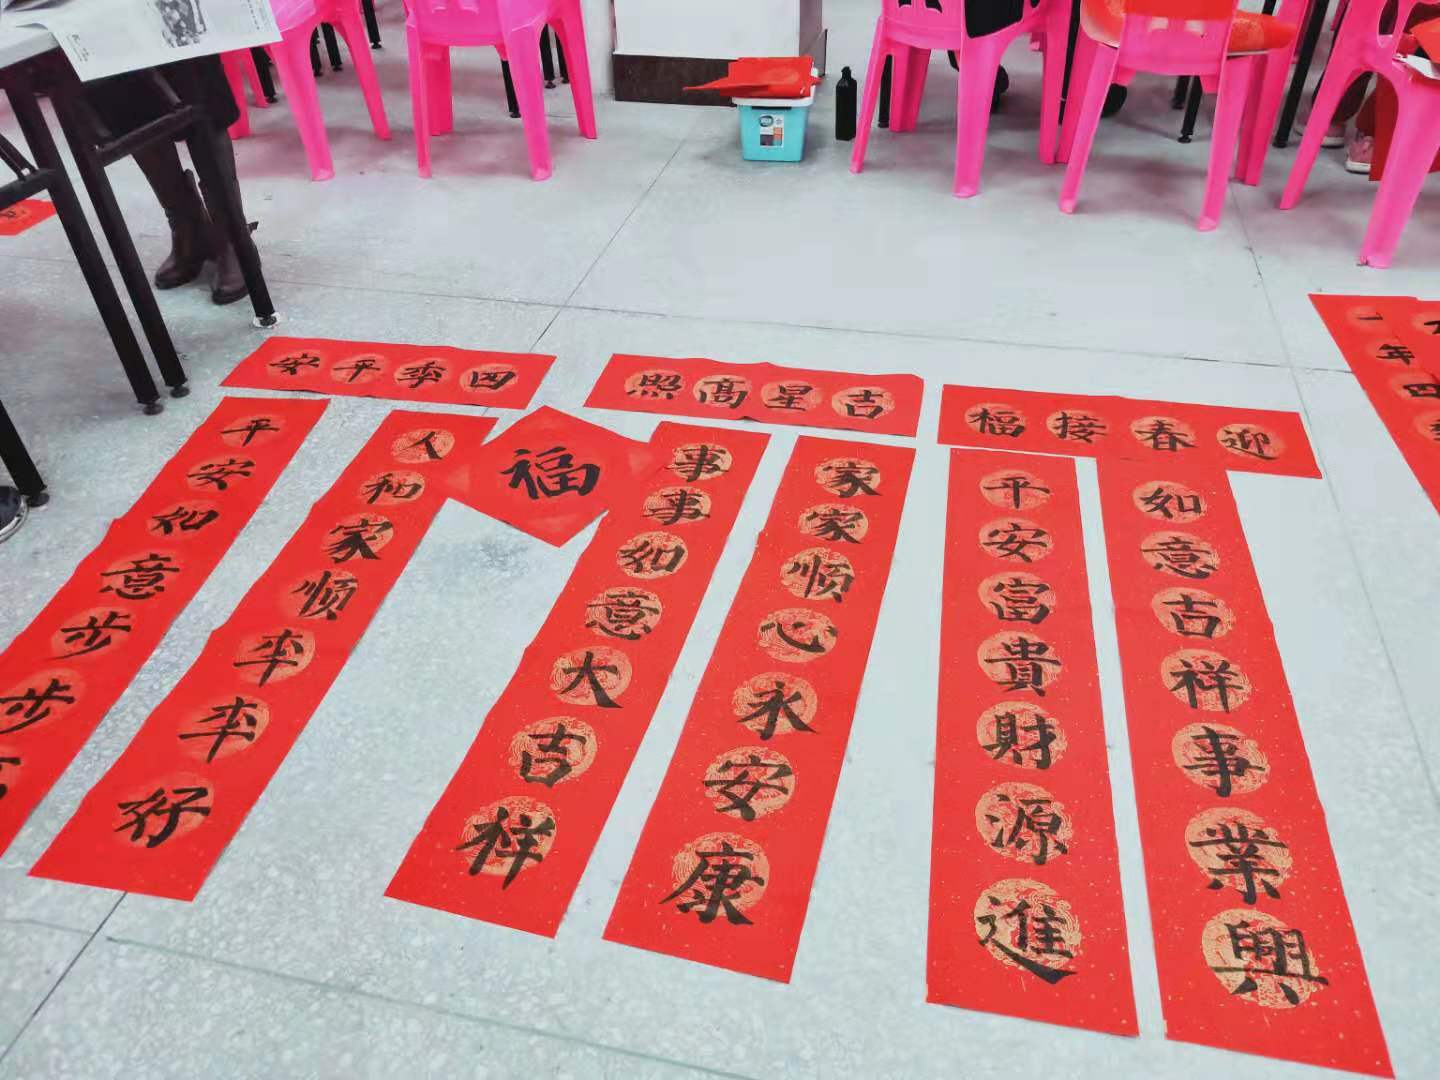 四季平安
人和家顺年年好
平安如意步步
福
吉星高照
家家顺心永安康
事事如意大吉祥
迎春接福
如意吉祥事業興
平安富貴財源進
一年四